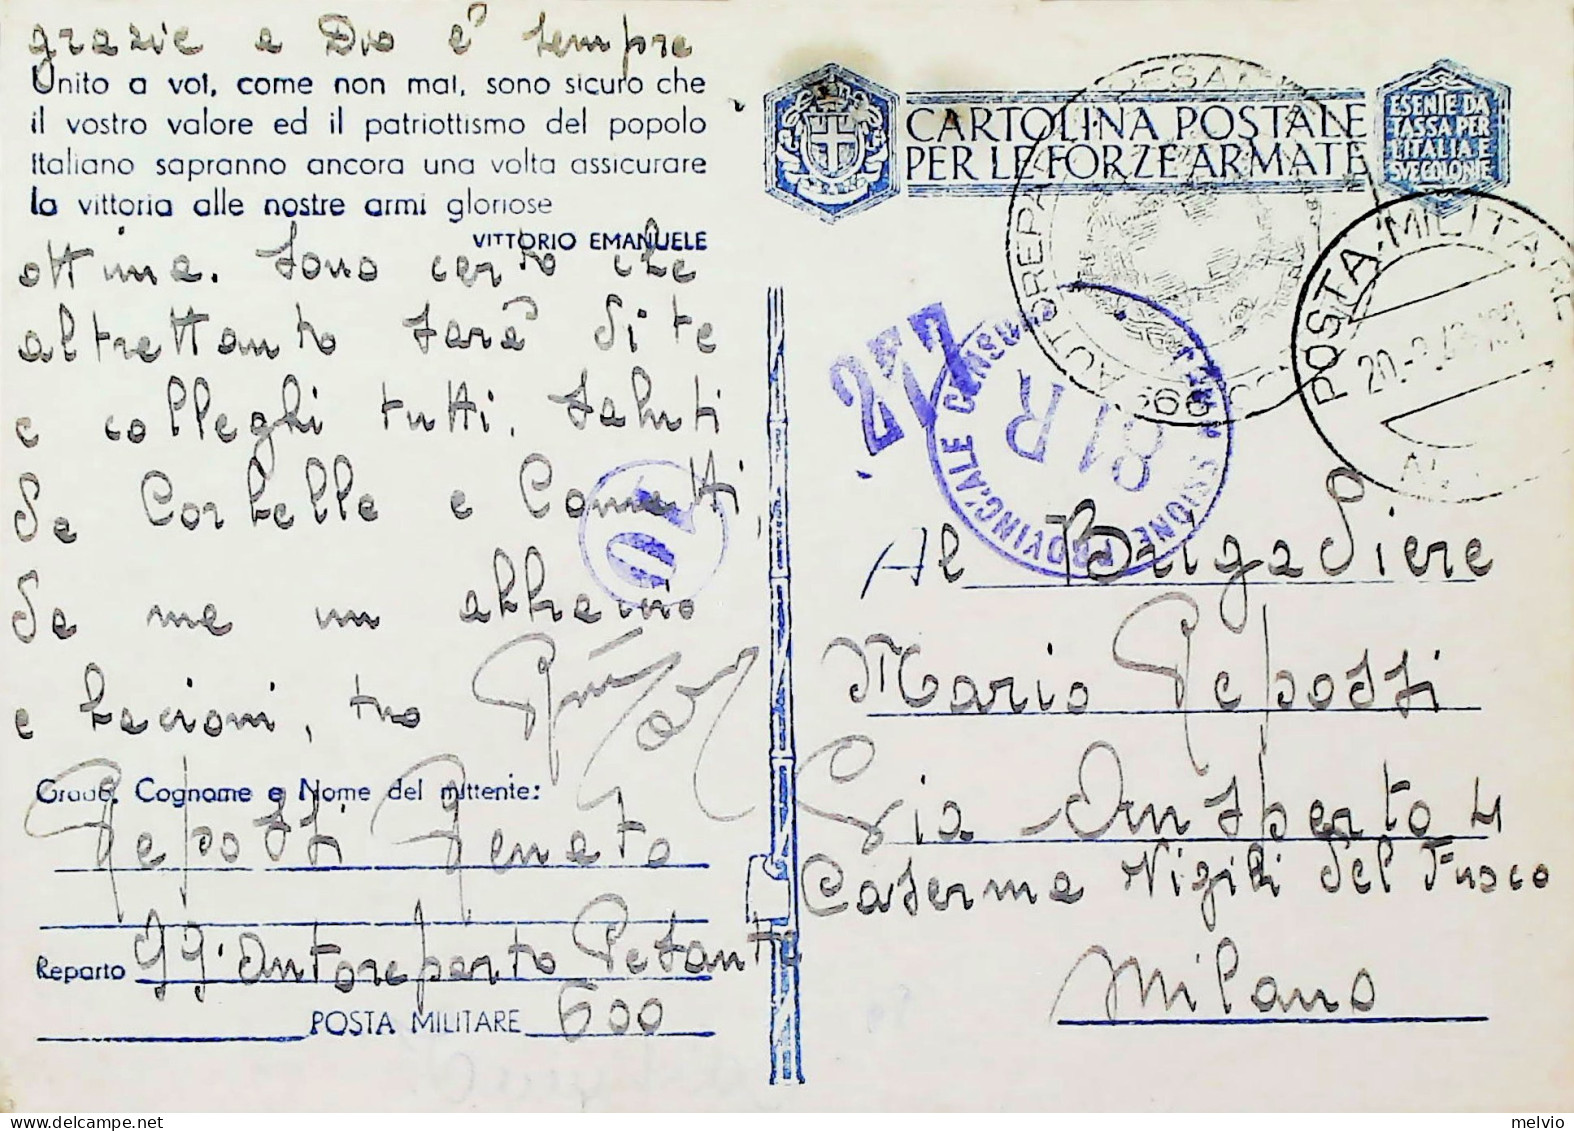 grazie a Dio è sempre
Unito a voi, come non mai, sono sicuro che
il vostro valore ed il patriottismo del popolo
italiano sapranno ancora una volta assicurare
la vittoria alle nostre armi gloriose
VITTORIO EMANUELE
ottima. Sono certo che
altrettanto sarà di te
e colleghi tutti. Saluti
da Corbelle e
da me un abbraccio
e bacioni, tuo
Grado, Cognome e Nome del mittente:
Repossi Renato
Reparto 99° Autoreparto Pesante
POSTA MILITARE 600
CARTOLINA POSTALE
PER LE FORZE ARMATE
ESENTE DA
TASSA PER
L'ITALIA E
SUE COLONIE
POSTA MILITARE
277
PROVINCIALE CENSURA
81 R
Al Brigadiere
Mario Repossi
Via Ansperto 4
Caserma Vigili del Fuoco
Milano
melvio